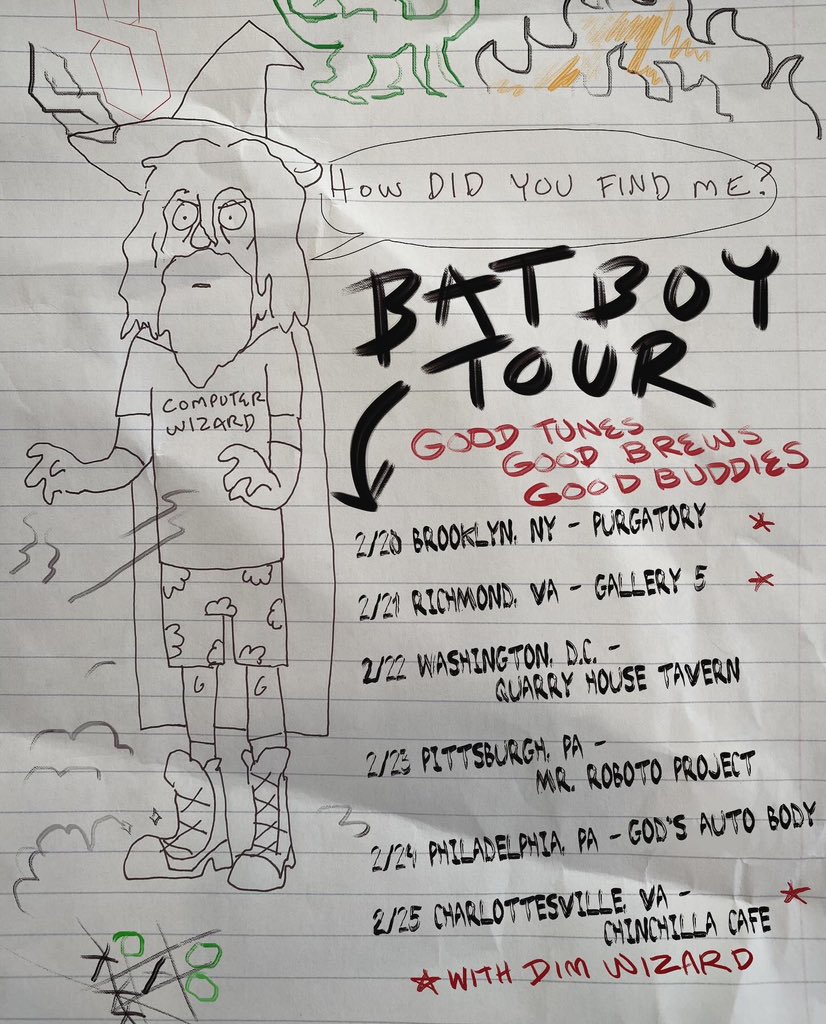 HOW DID YOU FIND ME?
BAT BOY
TOUR
COMPUTER
WIZARD
GOOD TUNES
GOOD BREWS
GOOD BUDDIES
2/20 BROOKLYN, NY - PURGATORY ☆
2/21 RICHMOND, VA - GALLERY 5 ☆
2/22 WASHINGTON, D.C. -
QUARRY HOUSE TAVERN
2/23 PITTSBURGH, PA -
MR. ROBOTO PROJECT
2/24 PHILADELPHIA, PA - GOD'S AUTO BODY
2/25 CHARLOTTESVILLE, VA - ☆
CHINCHILLA CAFE
☆ WITH DIM WIZARD